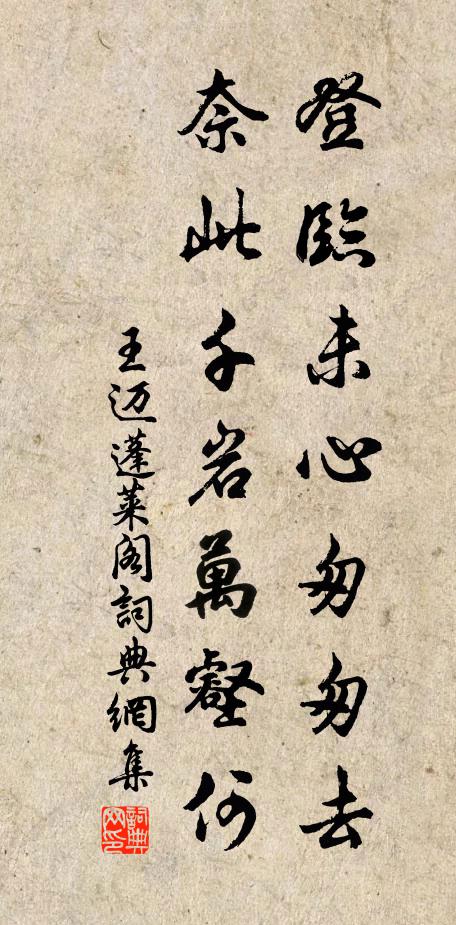 登臨未心匆匆去
奈此千岩萬壑何
王迈蓬萊阁詞典網集
詞典网印